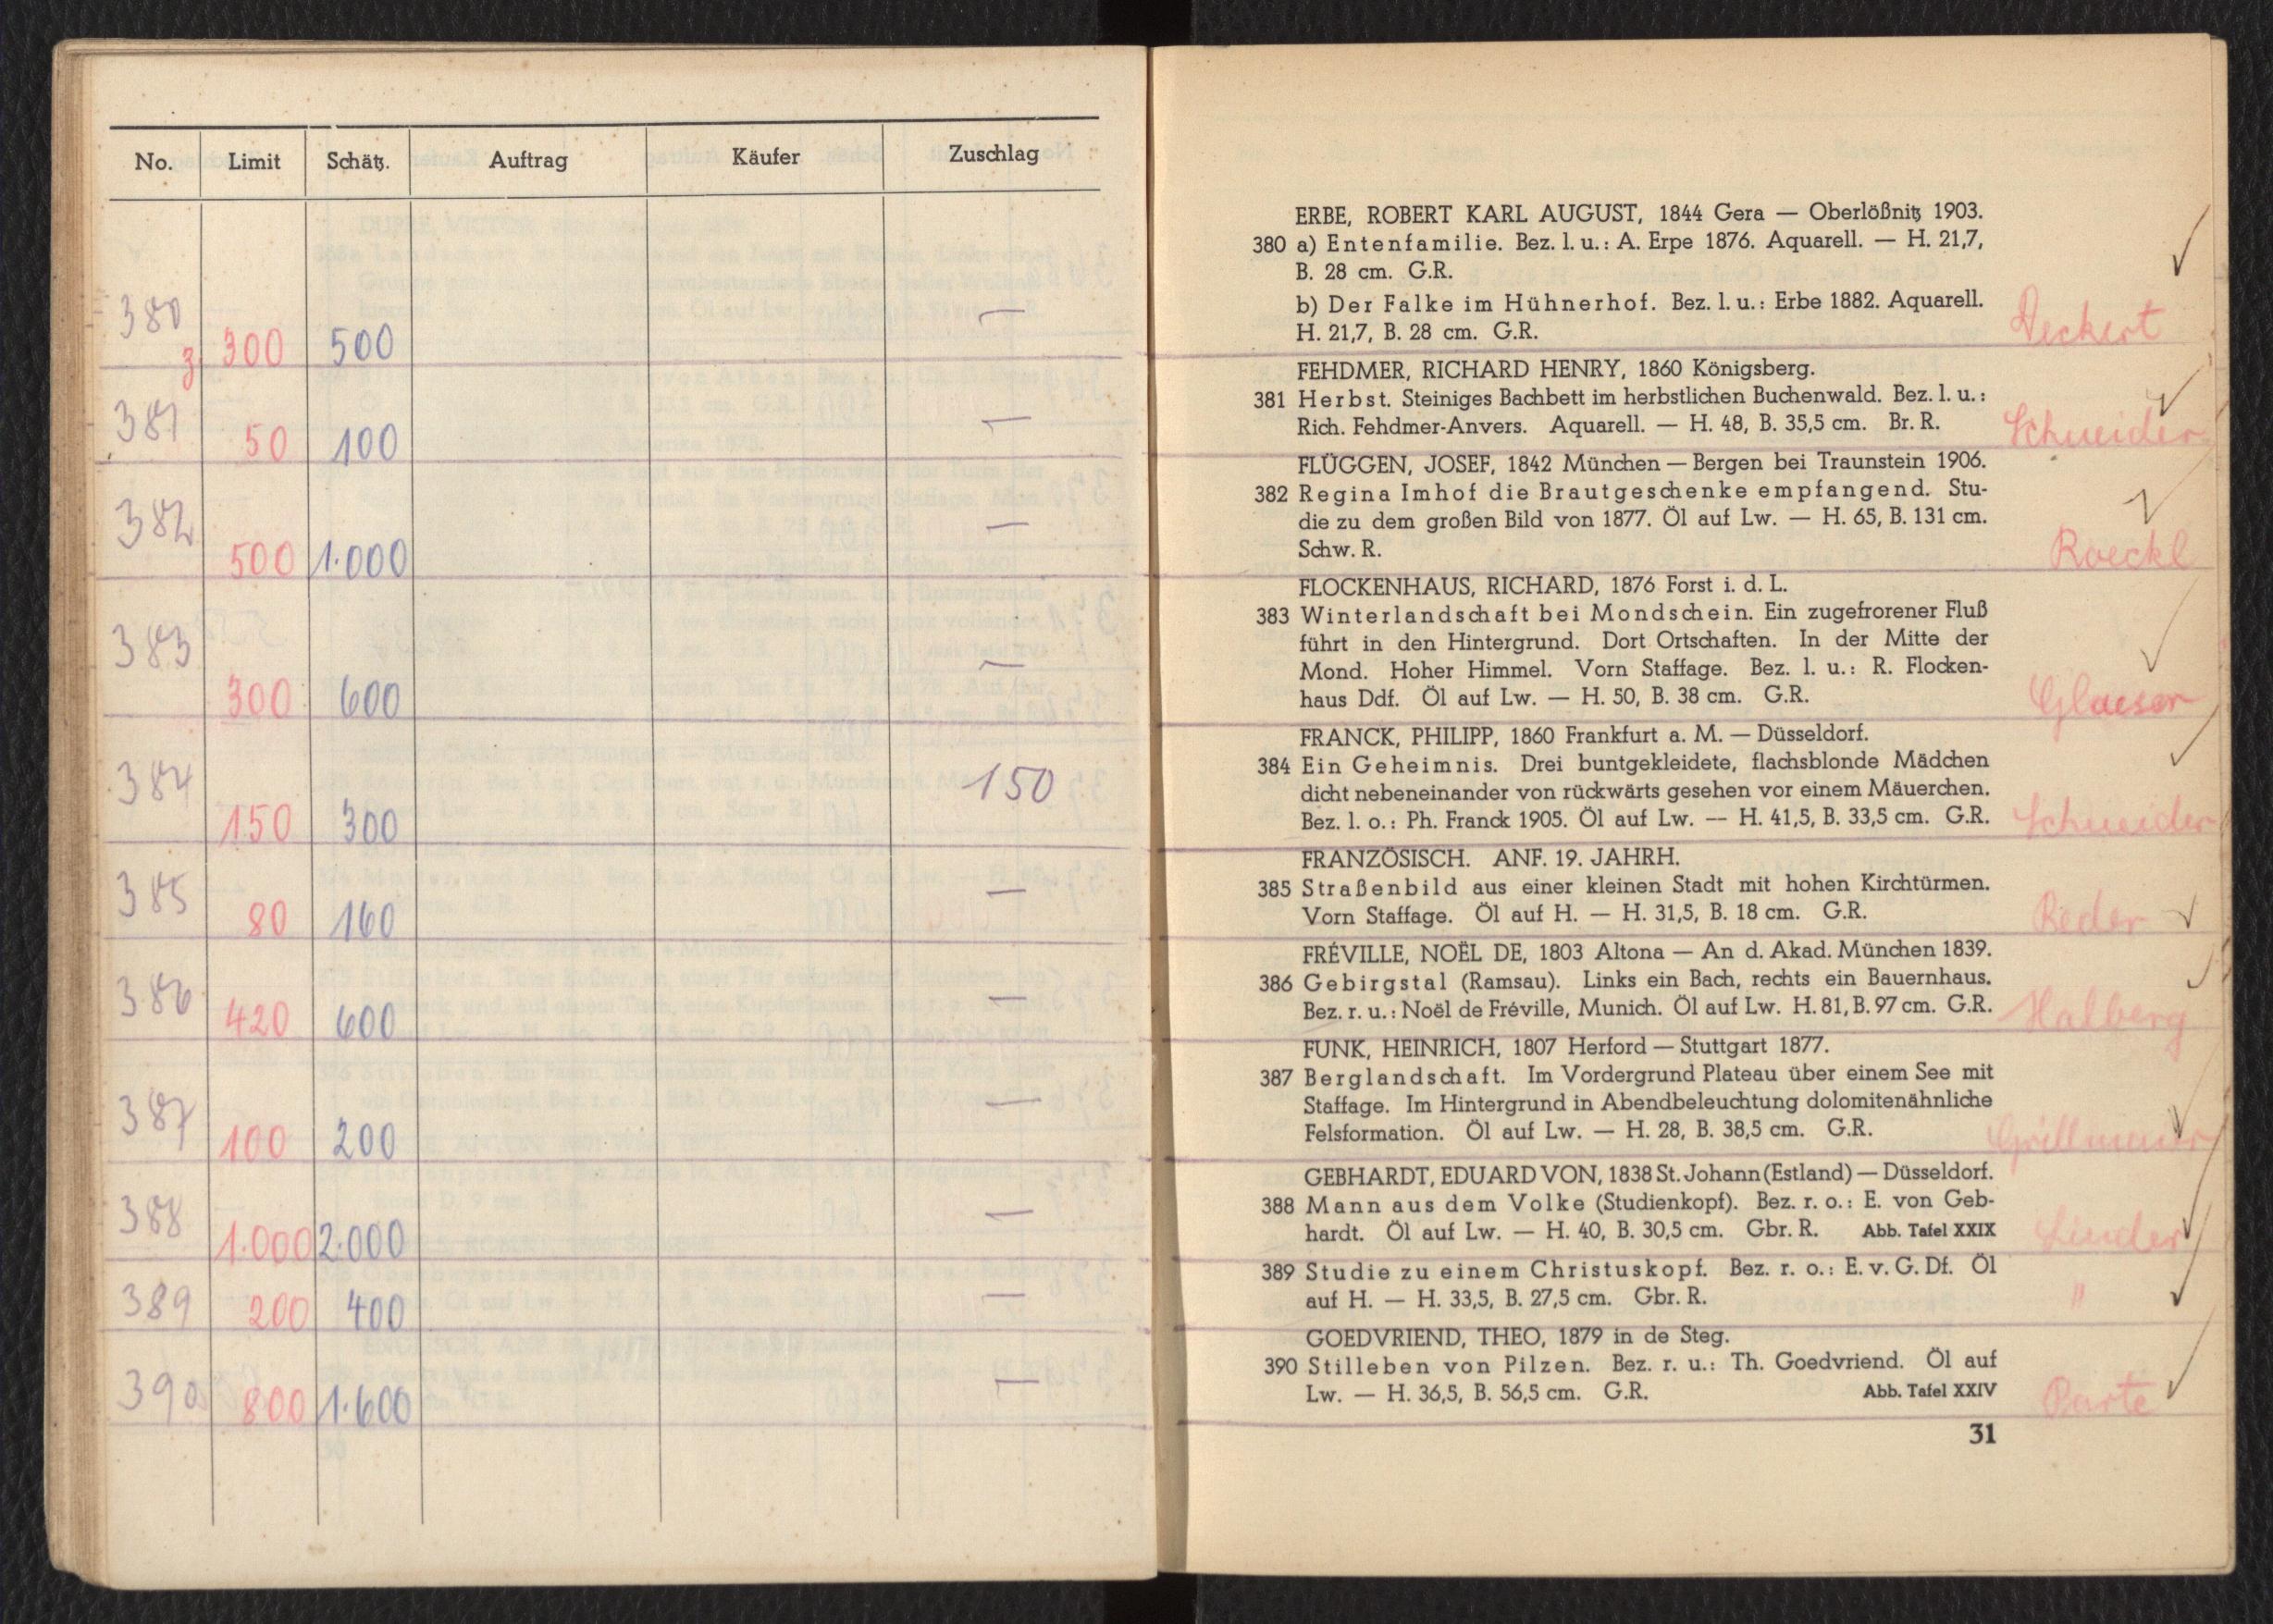 No. Limit Schätz. Auftrag Käufer Zuschlag
380 z. 300 500 —
381 50 100 —
382 500 1.000 —
383 300 600 —
384 150 300 150
385 80 160 —
386 420 600 —
387 100 200 —
388 1.000 2.000 —
389 200 400 —
390 800 1.600 —
ERBE, ROBERT KARL AUGUST, 1844 Gera — Oberlößnitz 1903.
380 a) Entenfamilie. Bez. l. u.: A. Erpe 1876. Aquarell. — H. 21,7,
B. 28 cm. G.R.
b) Der Falke im Hühnerhof. Bez. l. u.: Erbe 1882. Aquarell.
H. 21,7, B. 28 cm. G.R. Deckert
FEHDMER, RICHARD HENRY, 1860 Königsberg.
381 Herbst. Steiniges Bachbett im herbstlichen Buchenwald. Bez. l. u.:
Rich. Fehdmer-Anvers. Aquarell. — H. 48, B. 35,5 cm. Br. R. Schneider
FLÜGGEN, JOSEF, 1842 München — Bergen bei Traunstein 1906.
382 Regina Imhof die Brautgeschenke empfangend. Stu-
die zu dem großen Bild von 1877. Öl auf Lw. — H. 65, B. 131 cm.
Schw. R. Roeckl
FLOCKENHAUS, RICHARD, 1876 Forst i. d. L.
383 Winterlandschaft bei Mondschein. Ein zugefrorener Fluß
führt in den Hintergrund. Dort Ortschaften. In der Mitte der
Mond. Hoher Himmel. Vorn Staffage. Bez. l. u.: R. Flocken-
haus Ddf. Öl auf Lw. — H. 50, B. 38 cm. G.R. Glaeser
FRANCK, PHILIPP, 1860 Frankfurt a. M. — Düsseldorf.
384 Ein Geheimnis. Drei buntgekleidete, flachsblonde Mädchen
dicht nebeneinander von rückwärts gesehen vor einem Mäuerchen.
Bez. l. o.: Ph. Franck 1905. Öl auf Lw. — H. 41,5, B. 33,5 cm. G.R. Schneider
FRANZÖSISCH. ANF. 19. JAHRH.
385 Straßenbild aus einer kleinen Stadt mit hohen Kirchtürmen.
Vorn Staffage. Öl auf H. — H. 31,5, B. 18 cm. G.R. Reder
FRÉVILLE, NOËL DE, 1803 Altona — An d. Akad. München 1839.
386 Gebirgstal (Ramsau). Links ein Bach, rechts ein Bauernhaus.
Bez. r. u.: Noël de Fréville, Munich. Öl auf Lw. H. 81, B. 97 cm. G.R. Halberg
FUNK, HEINRICH, 1807 Herford — Stuttgart 1877.
387 Berglandschaft. Im Vordergrund Plateau über einem See mit
Staffage. Im Hintergrund in Abendbeleuchtung dolomitenähnliche
Felsformation. Öl auf Lw. — H. 28, B. 38,5 cm. G.R. Grillmaier
GEBHARDT, EDUARD VON, 1838 St. Johann (Estland) — Düsseldorf.
388 Mann aus dem Volke (Studienkopf). Bez. r. o.: E. von Geb-
hardt. Öl auf Lw. — H. 40, B. 30,5 cm. Gbr. R. Abb. Tafel XXIX Linder
389 Studie zu einem Christuskopf. Bez. r. o.: E. v. G. Df. Öl
auf H. — H. 33,5, B. 27,5 cm. Gbr. R. "
GOEDVRIEND, THEO, 1879 in de Steg.
390 Stilleben von Pilzen. Bez. r. u.: Th. Goedvriend. Öl auf
Lw. — H. 36,5, B. 56,5 cm. G.R. Abb. Tafel XXIV
31